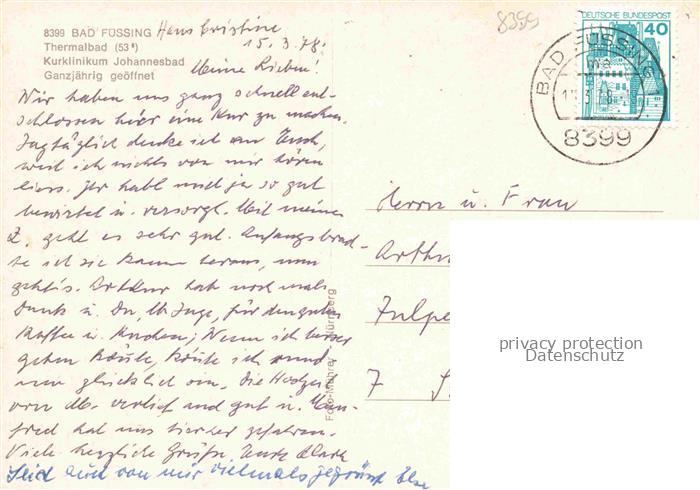 8399 BAD FÜSSING
Thermalbad (53°)
Kurklinikum Johannesbad
Ganzjährig geöffnet
Haus Cristine
15.3.78.
Meine Lieben!
Wir haben uns ganz schnell ent-
schlossen hier eine Kur zu machen.
Tagtäglich denke ich an Euch,
weil ich nichts von mir hören
liess. Ihr habt mich ja so gut
bewirtet u. versorgt. Mit meine
geht es sehr gut. Anfangs brach-
te ich sie kaum heraus, nun
geht's. Arthur hab noch mals
Dank u. Du, für den guten
Kaffee u. Kuchen; Wenn ich besser
gehen könnte, könnte ich
nun glücklich sein. Die Hochzeit
von verlief und gut u. Man-
fred hat uns hierher gefahren.
Viele herzliche Grüße Eure Klara
Seid auch von mir vielmals gegrüßt Else
8399
DEUTSCHE BUNDESPOST
40
BAD FÜSSING
8399
Herrn u. Frau
Arth
Zulpe
7 S
Nürnberg
privacy protection
Datenschutz